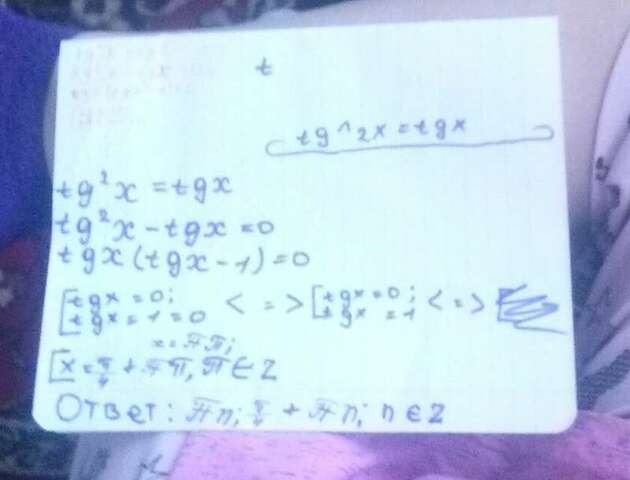 t
tg^2x=tgx
tg²x=tgx
tg²x-tgx=0
tgx(tgx-1)=0
[tgx=0; <=> [tgx=0; <=> [
tgx=1=0 tgx=1
x=πn;
[x=π/4+πn, n∈Z
Ответ: πn; π/4+πn; n∈Z